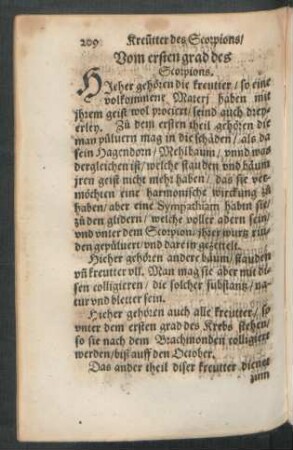 209 Kreütter des Scorpions/
Vom ersten grad des
Scorpions.
HJeher gehören die kreutter / so eine
volkommene Materj haben mit
jhrem geist wol prociert / seind auch drey-
erley. Zu dem ersten theil gehören die
man pülvern mag in die schäden / als da
sein Hagendorn / Mehlbaum / vnnd was
dergleichen ist / welche stauden vnd bäum
jren geist nicht mehr haben / das sie ver-
möchten eine harmonische wirckung zu
haben / aber eine Sympathiam habin sie /
zu den glidern / welche voller adern sein /
vnd vnter dem Scorpion. jhre wurtz rin-
den gepülvert / vnd dare in gezettelt.
Hieher gehören andere bäum / stauden
vñ kreutter vll. Man mag sie aber mit di-
sen colligieren / die solcher substantz / na-
tur vnd bletter sein.
Hieher gehören auch alle kreutter / so
vnter dem ersten grad des Krebs stehen /
so sie nach dem Brachmonden colligiert
werden / biß auff den October.
Das ander theil diser kreutter dienet
zum